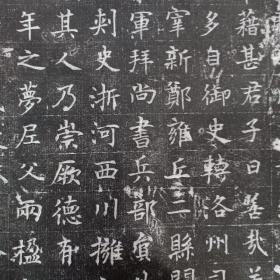 藉甚君子曰賢哉
多自御史轉洛州司
宰新鄭雍丘二縣閞
軍拜尚書兵部
刾史浙河西川擁
其人乃崇厥德有
年之夢𡉄父兩楹